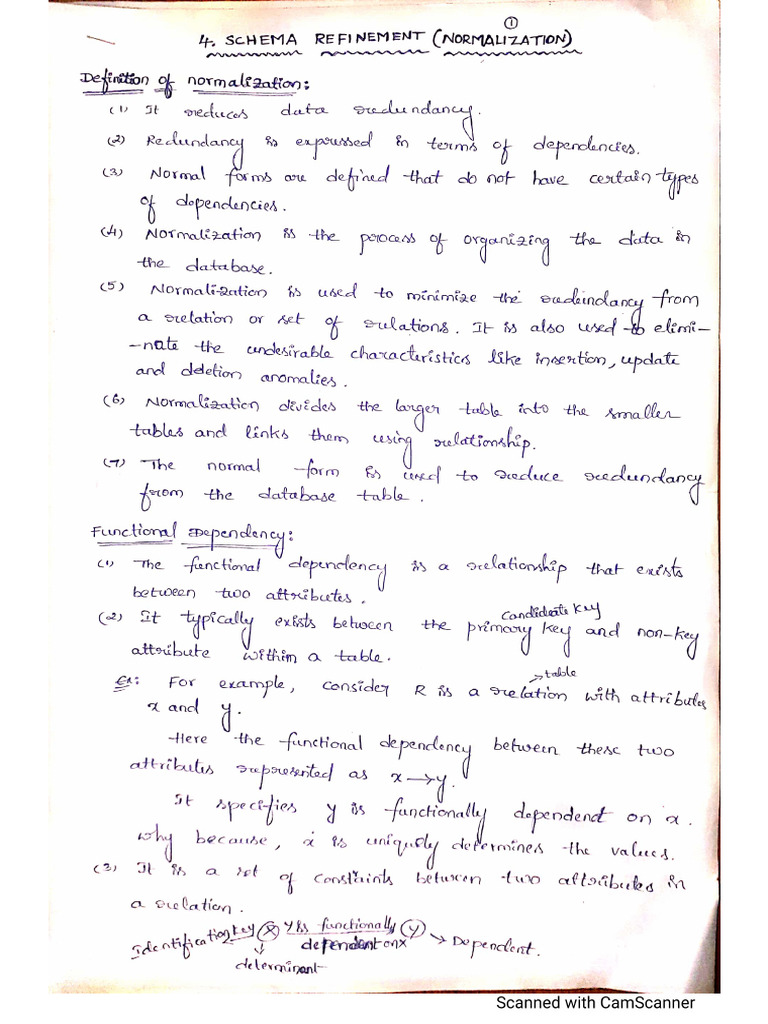 ①
4. SCHEMA REFINEMENT (NORMALIZATION)
Definition of normalization:
(1) It reduces data redundancy.
(2) Redundancy is expressed in terms of dependencies.
(3) Normal forms are defined that do not have certain types
of dependencies.
(4) Normalization is the process of organizing the data in
the database.
(5) Normalization is used to minimize the redundancy from
a relation or set of relations. It is also used to elimi-
-nate the undesirable characteristics like insertion, update
and deletion anomalies.
(6) Normalization divides the larger table into the smaller
tables and links them using relationship.
(7) The normal form is used to reduce redundancy
from the database table.
Functional Dependency:
(1) The functional dependency is a relationship that exists
between two attributes.
candidate key
(2) It typically exists between the primary key and non-key
attribute within a table.
→table
Ex: For example, consider R is a relation with attributes
x and y.
Here the functional dependency between these two
attributes represented as x→y.
It specifies y is functionally dependent on x.
why because, x is uniquely determines the values.
(3) It is a set of constaints between two attributes in
a relation.
Identification key (X) Y is functionally (Y) → Dependent.
dependent on x
↓
determinant
Scanned with CamScanner